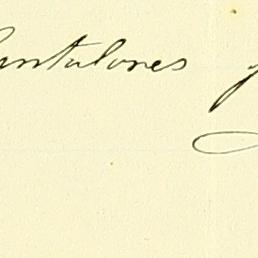 Pantalones y